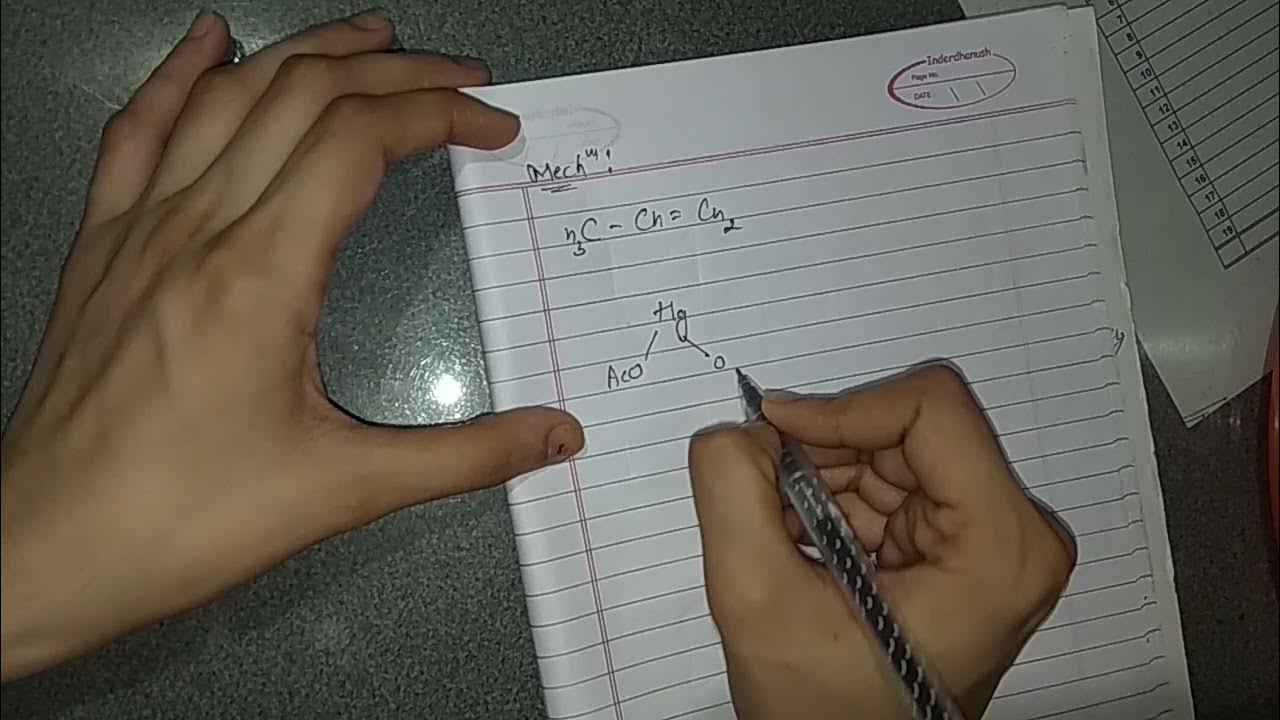 Inderdhanush
Page No.
DATE :
Mechᵐ :
H₃C - CH = CH₂
Hg
AcO O
6
7
8
9
10
11
12
13
14
15
16
17
18
19